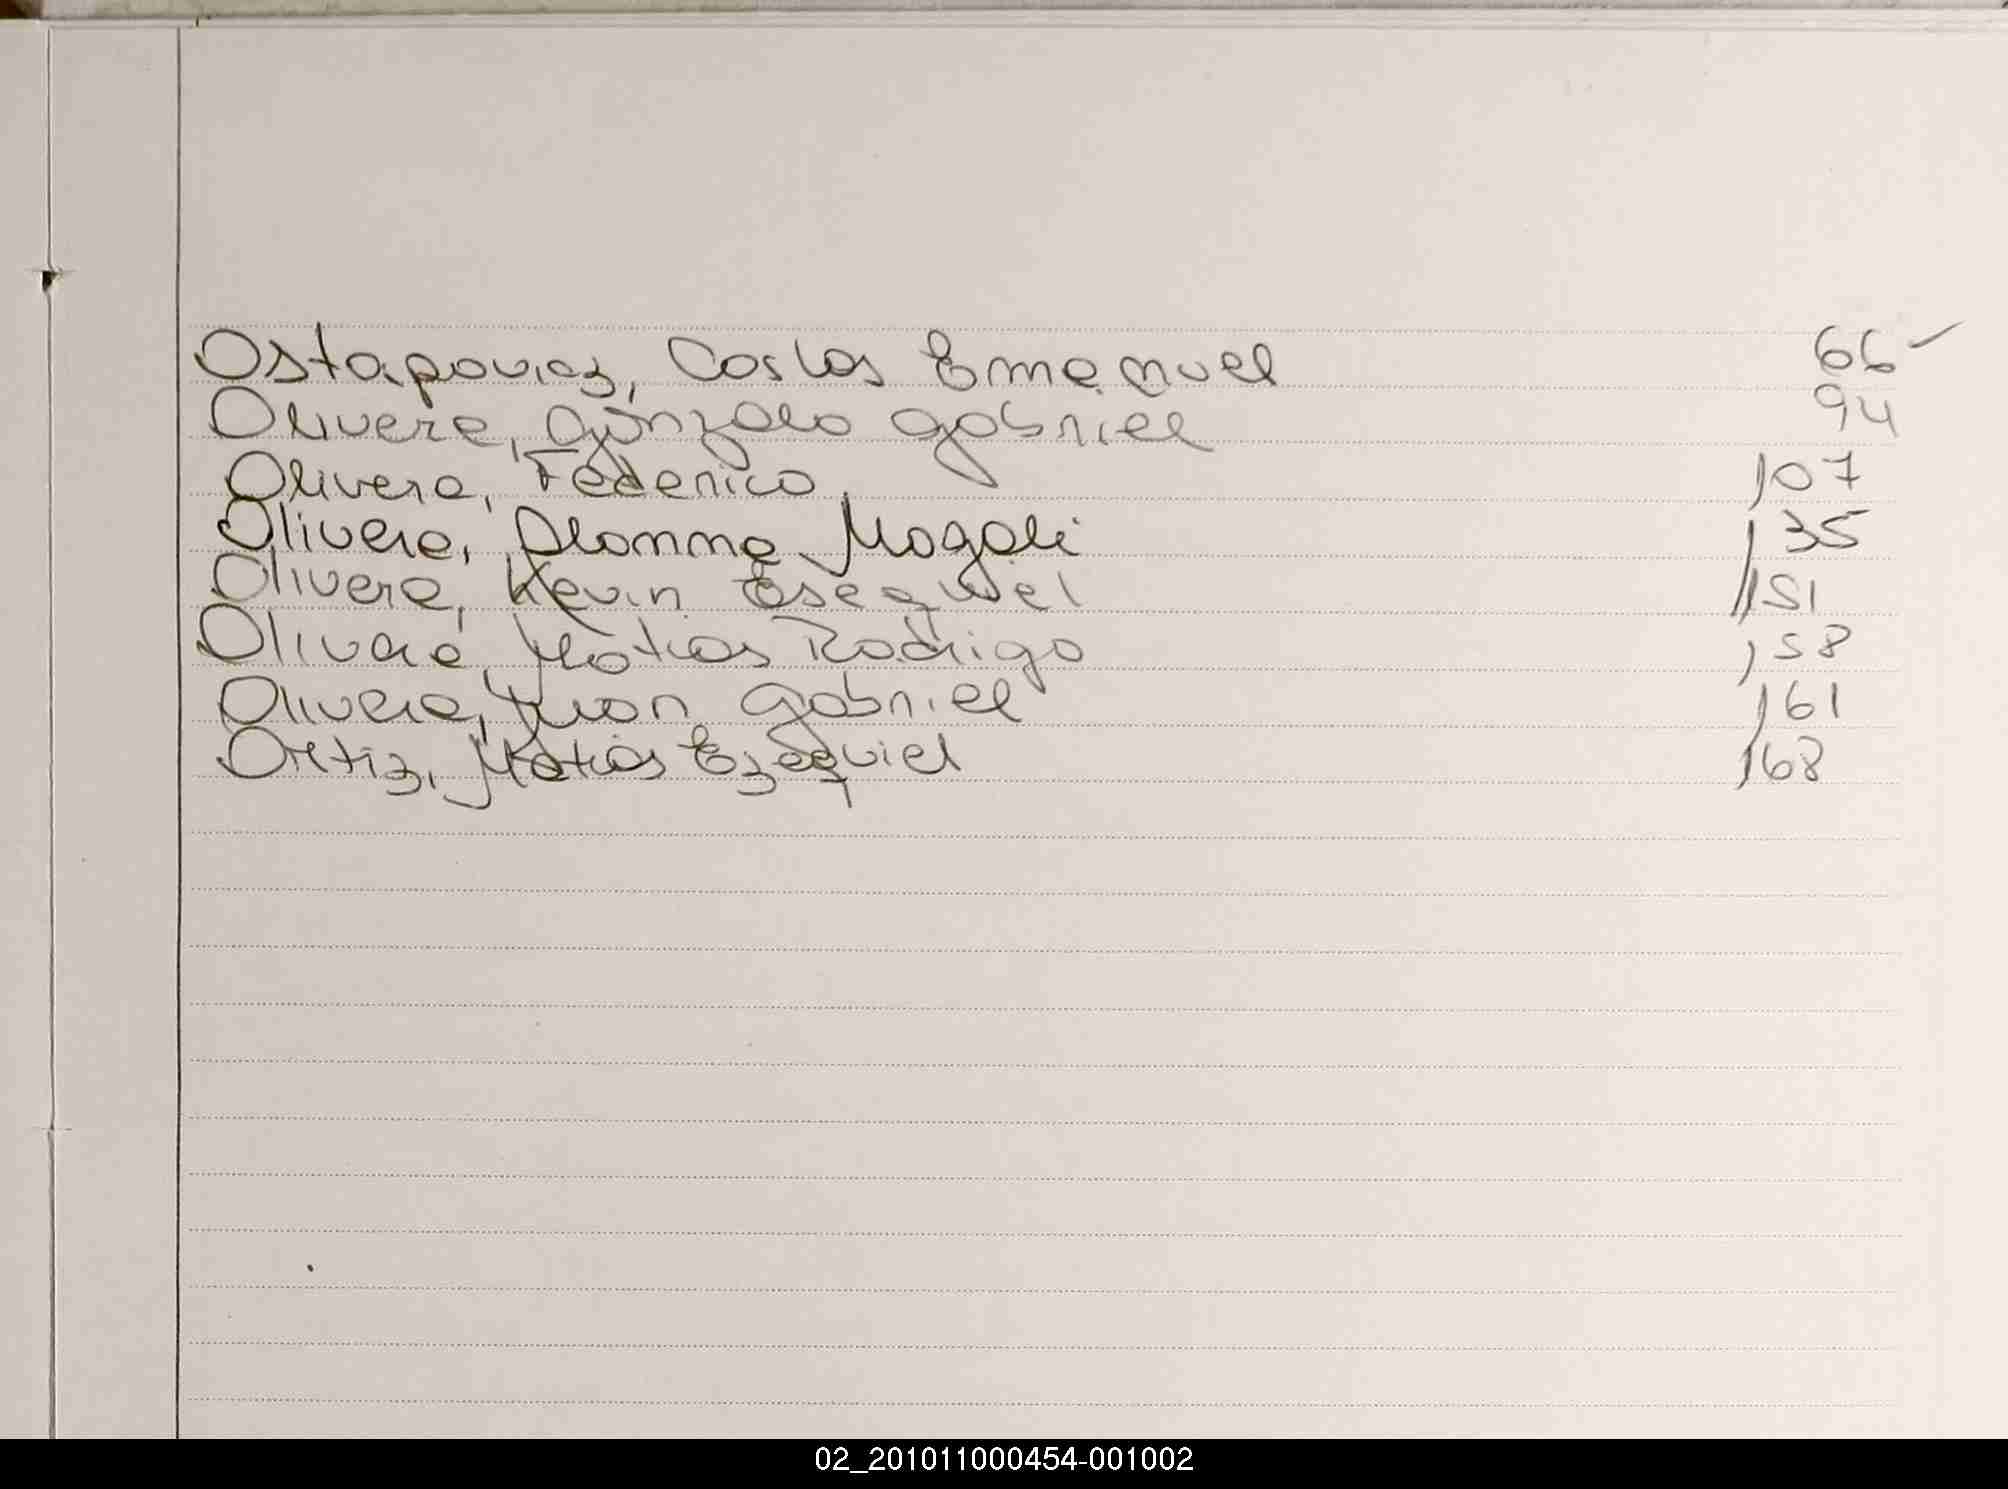 Ostapovicz, Carlos Emanuel 66
Olivera, Gonzalo Gabriel 94
Olivera, Federico 107
Olivera, Alomma Magali 135
Olivera, Kevin Esequiel 151
Olivera, Matias Rodrigo 158
Olivera, Juan Gabriel 161
Ortiz, Matias Ezequiel 168
02_201011000454-001002